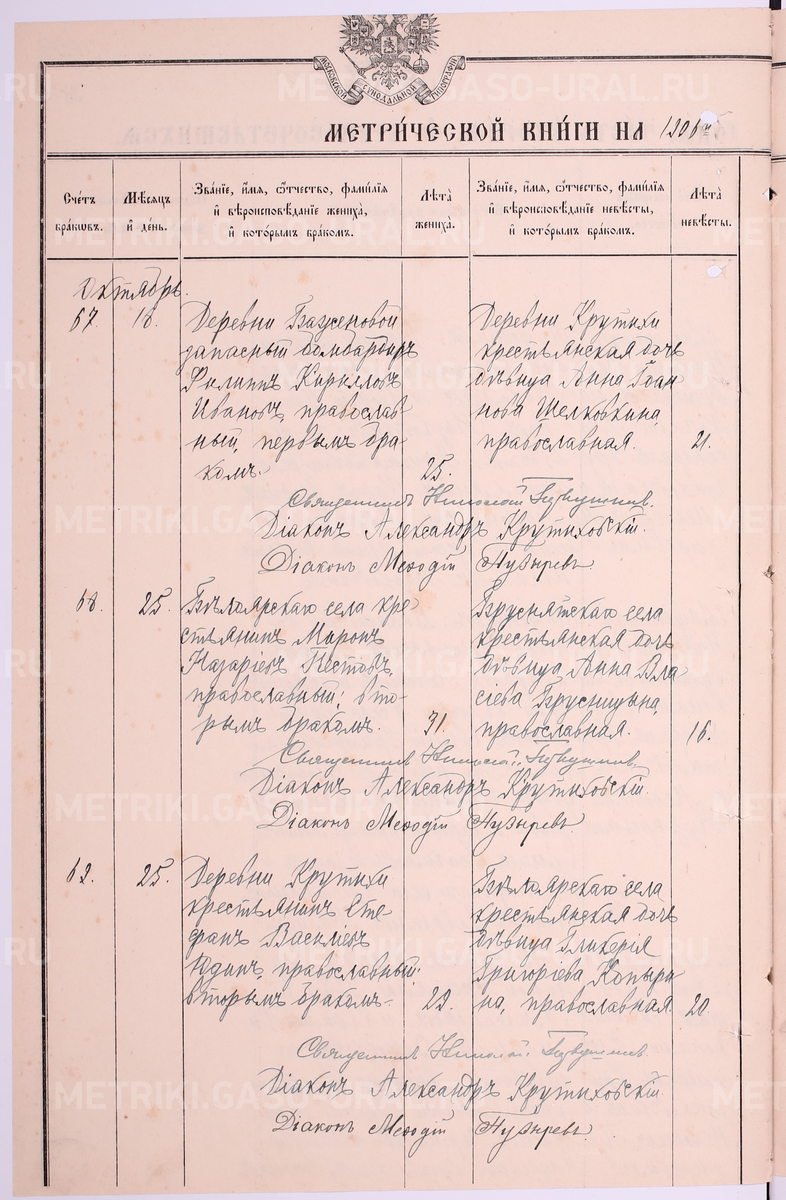 МОСКОВСКОЙ СѴНОДАЛЬНОЙ ТИПОГРАФІИ
МЕТРИ́ЧЕСКОЙ КНИ́ГИ НА 1906 г.
Сче́тъ бра́кѡвъ.
Мѣ́сяцъ и҆ де́нь.
Зва́нїе, и҆́мя, ѻ҆́тчество, фами́лїя
и҆ вѣроисповѣ́данїе жениха̀,
и҆ кото́рымъ бра́комъ.
Лѣта̀ жениха̀.
Зва́нїе, и҆́мя, ѻ҆́тчество, фами́лїя
и҆ вѣроисповѣ́данїе невѣ́сты,
и҆ кото́рымъ бра́комъ.
Лѣта̀ невѣ́сты.
Октябрь.
67. 18.
Деревни Баженовой
запасный бомбардиръ
Филиппъ Кириловъ
Ивановъ, православ-
ный, первымъ бра-
комъ.
25.
Деревни Крутихи
крестьянская дочь
дѣвица Анна Іоан-
нова Шелковкина,
православная.
21.
Священникъ Николай
Діаконъ Александръ Крутиховскій.
Діаконъ Меѳодій Пузыревъ.
68. 25.
Бѣлоярскаго села кре-
стьянинъ Миронъ
Назаріевъ Пестовъ,
православный; вто-
рымъ бракомъ.
31.
Бруснятскаго села
крестьянская дочь
дѣвица Анна Вла-
сіева Брусницына,
православная.
16.
Священникъ Николай
Діаконъ Александръ Крутиховскій.
Діаконъ Меѳодій Пузыревъ
69. 25.
Деревни Крутихи
крестьянинъ Сте-
фанъ Василіевъ
Юдинъ, православный;
вторымъ бракомъ.
29.
Бѣлоярскаго села
крестьянская дочь
дѣвица Гликерія
Григоріева Копыри-
на, православная.
20.
Священникъ Николай
Діаконъ Александръ Крутиховскій
Діаконъ Меѳодій Пузыревъ.
METRIKI.GASO-URAL.RU